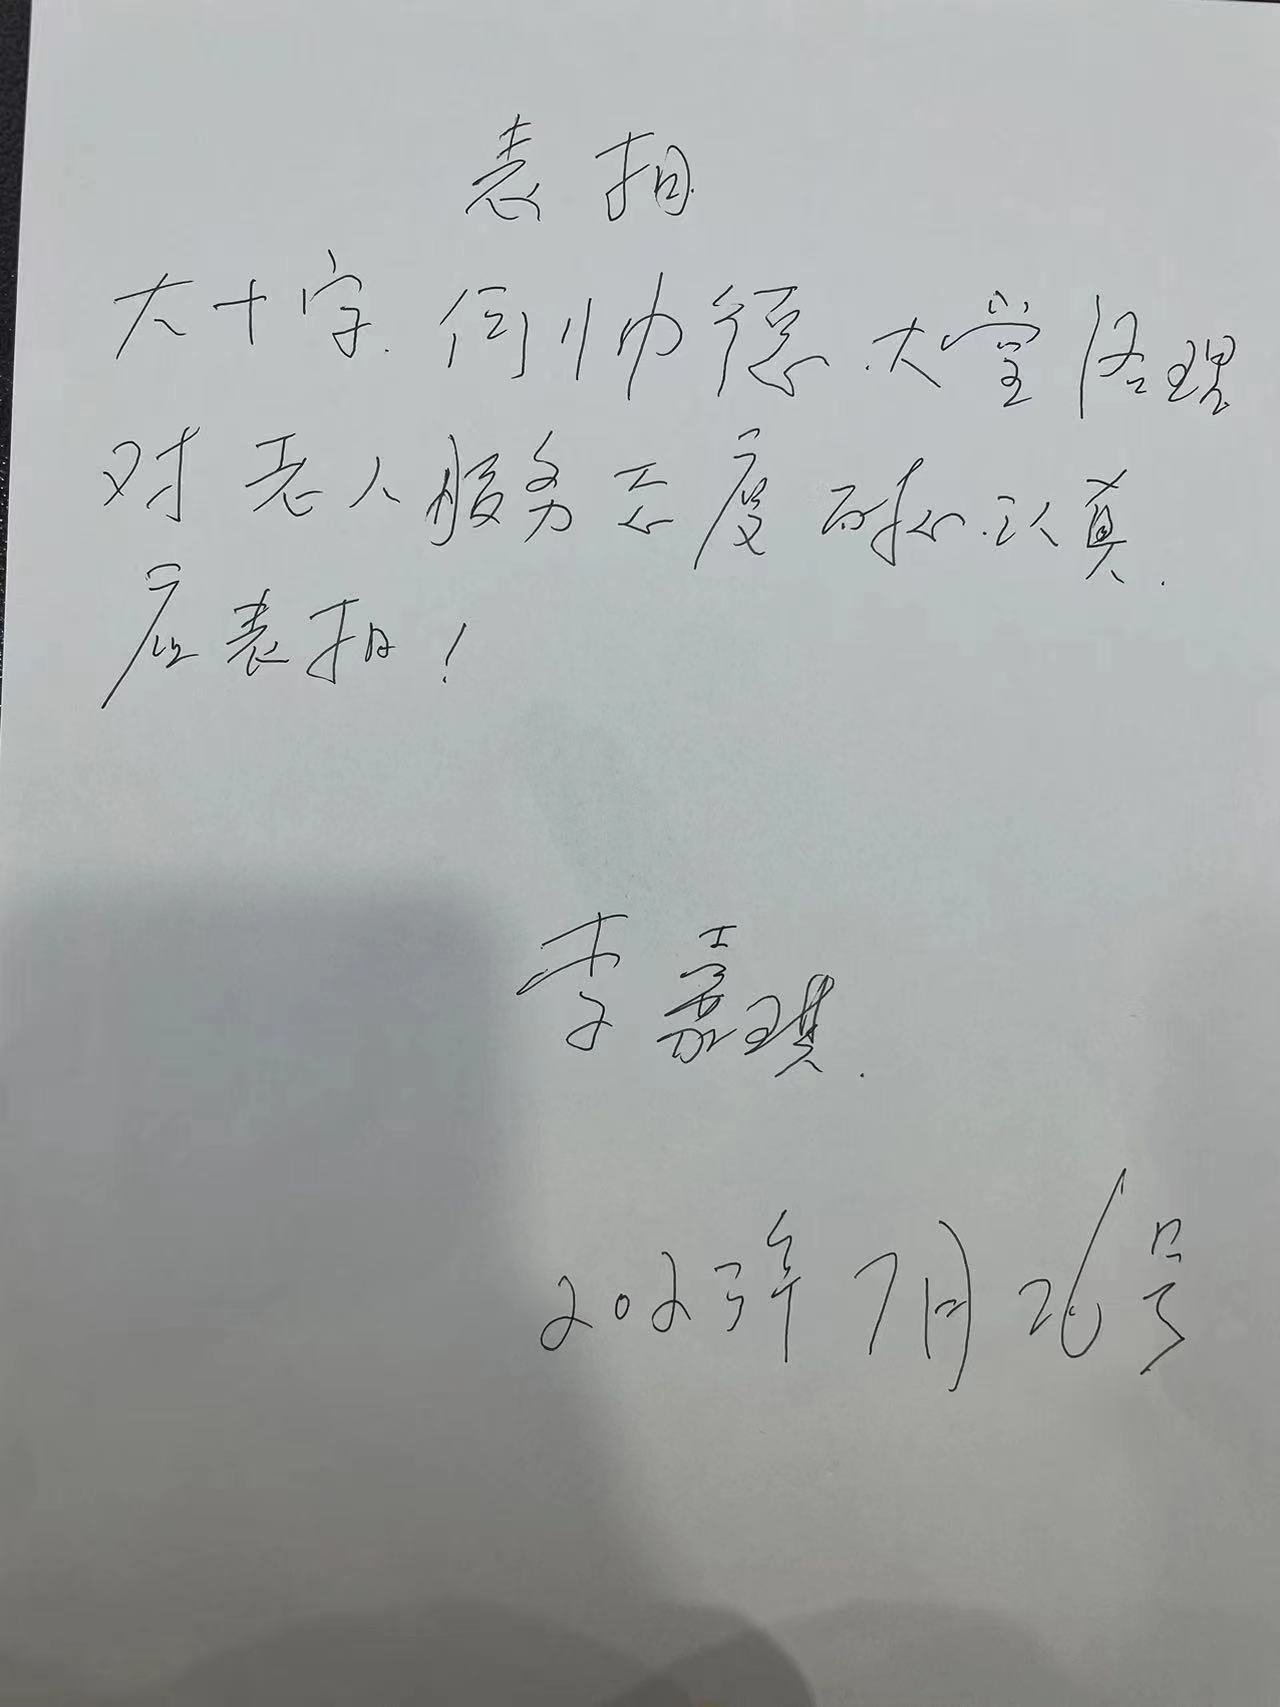 表扬
大十字.何帅德.大堂经理
对老人服务态度耐心.认真.
应表扬!
李嘉琪.
2023年7月26号